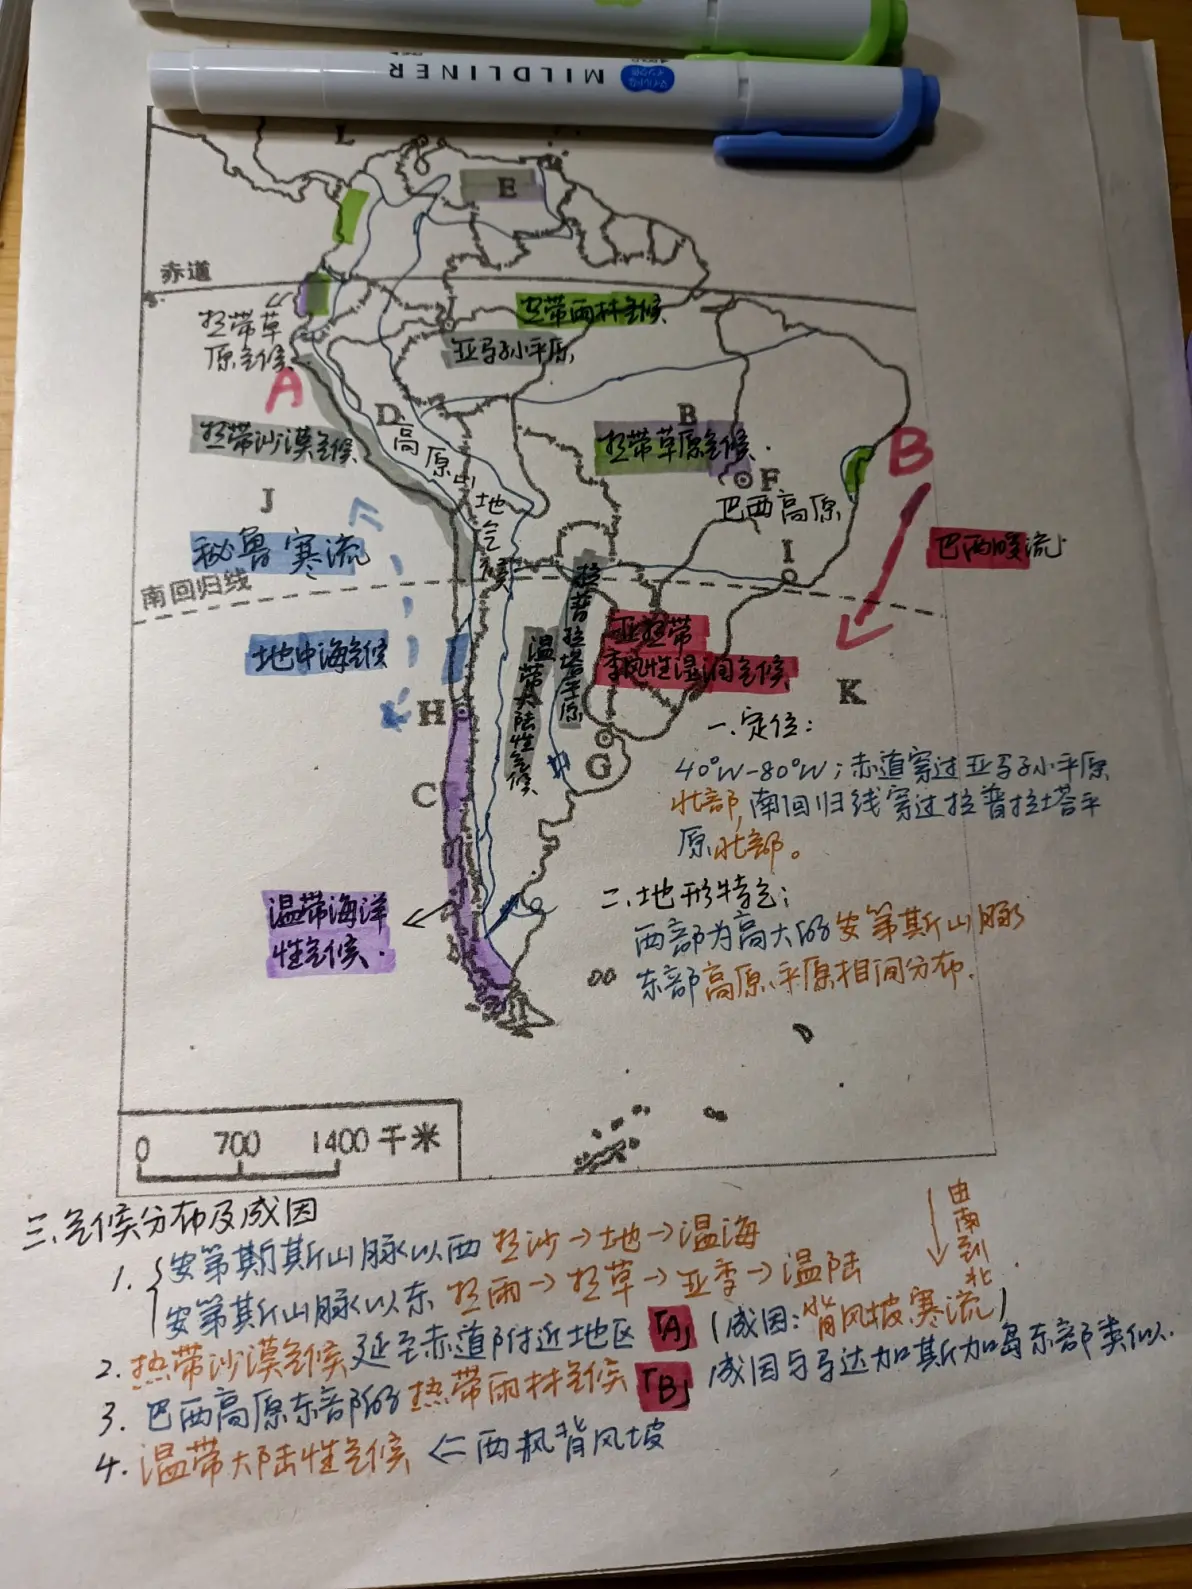 MILDLINER
L
E
赤道
热带雨林气候
热带草
原气候
亚马孙平原
A
D
高原山地气候
B
热带沙漠气候
热带草原气候.
B
F
J
巴西高原
秘鲁寒流
巴西暖流
I
南回归线
拉普拉塔平原
地中海气候
亚热带
季风性湿润气候
温带大陆性气候
K
H
G
C
一.定位:
40°W-80°W;赤道穿过亚马孙平原
北部,南回归线穿过拉普拉塔平
原北部。
二.地形特色;
西部为高大的安第斯山脉
东部高原、平原相间分布.
温带海洋
性气候.
0 700 1400 千米
三.气候分布及成因
由南到北.
1. 安第斯斯山脉以西 热沙→地→温海
安第斯山脉以东 热雨→热草→亚季→温陆
2. 热带沙漠气候延至赤道附近地区「A」(成因:背风坡.寒流)
3. 巴西高原东部的热带雨林气候「B」成因与马达加斯加岛东部类似.
4. 温带大陆性气候 ⇐ 西风背风坡